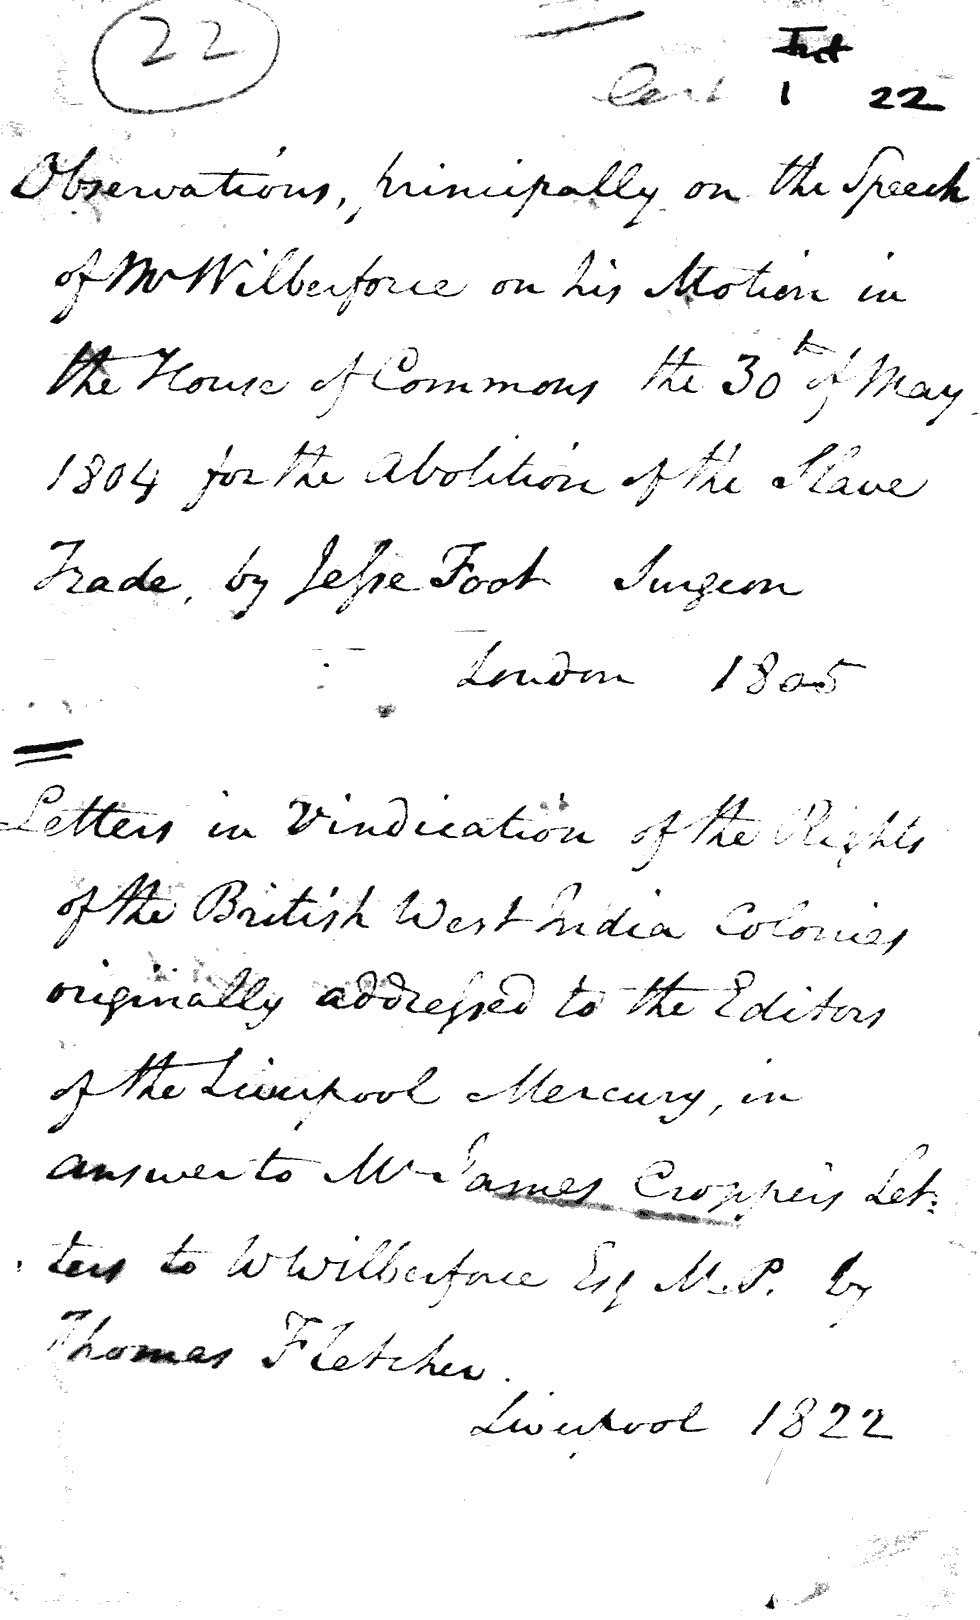 22
1 22
Observations, principally on the Speech
of Mr Wilberforce on his Motion in
the House of Commons the 30th of May
1804 for the Abolition of the Slave
Trade, by Jesse Foot Surgeon
London 1805
Letters in Vindication of the Rights
of the British West India Colonies
originally addressed to the Editors
of the Liverpool Mercury, in
answer to Mr James Cropper's Let:
ters to W Wilberforce Esq M.P. by
Thomas Fletcher.
Liverpool 1822